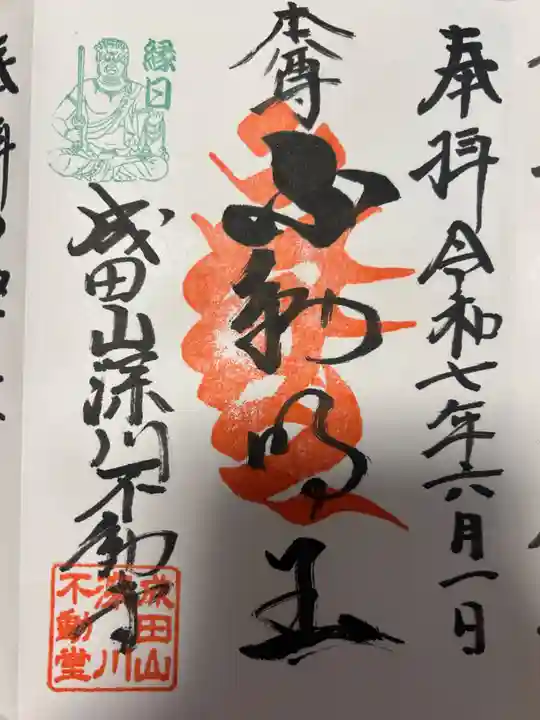 奉拝 令和七年六月一日
本尊
不動明王
縁日
成田山深川不動堂
成田山
深川
不動堂